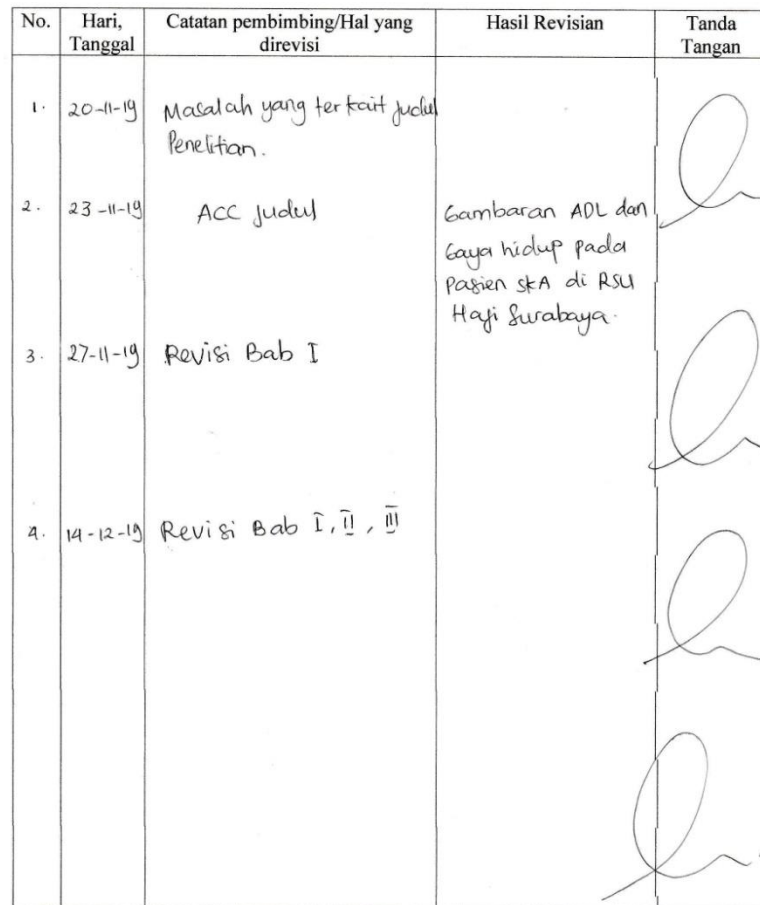 No. Hari, Tanggal Catatan pembimbing/Hal yang direvisi Hasil Revisian Tanda Tangan
1. 20-11-19 Masalah yang terkait judul
Penelitian.
2. 23-11-19 ACC judul Gambaran ADL dan
Gaya hidup pada
Pasien SKA di RSU
Haji Surabaya.
3. 27-11-19 Revisi Bab I
4. 14-12-19 Revisi Bab I, II, III